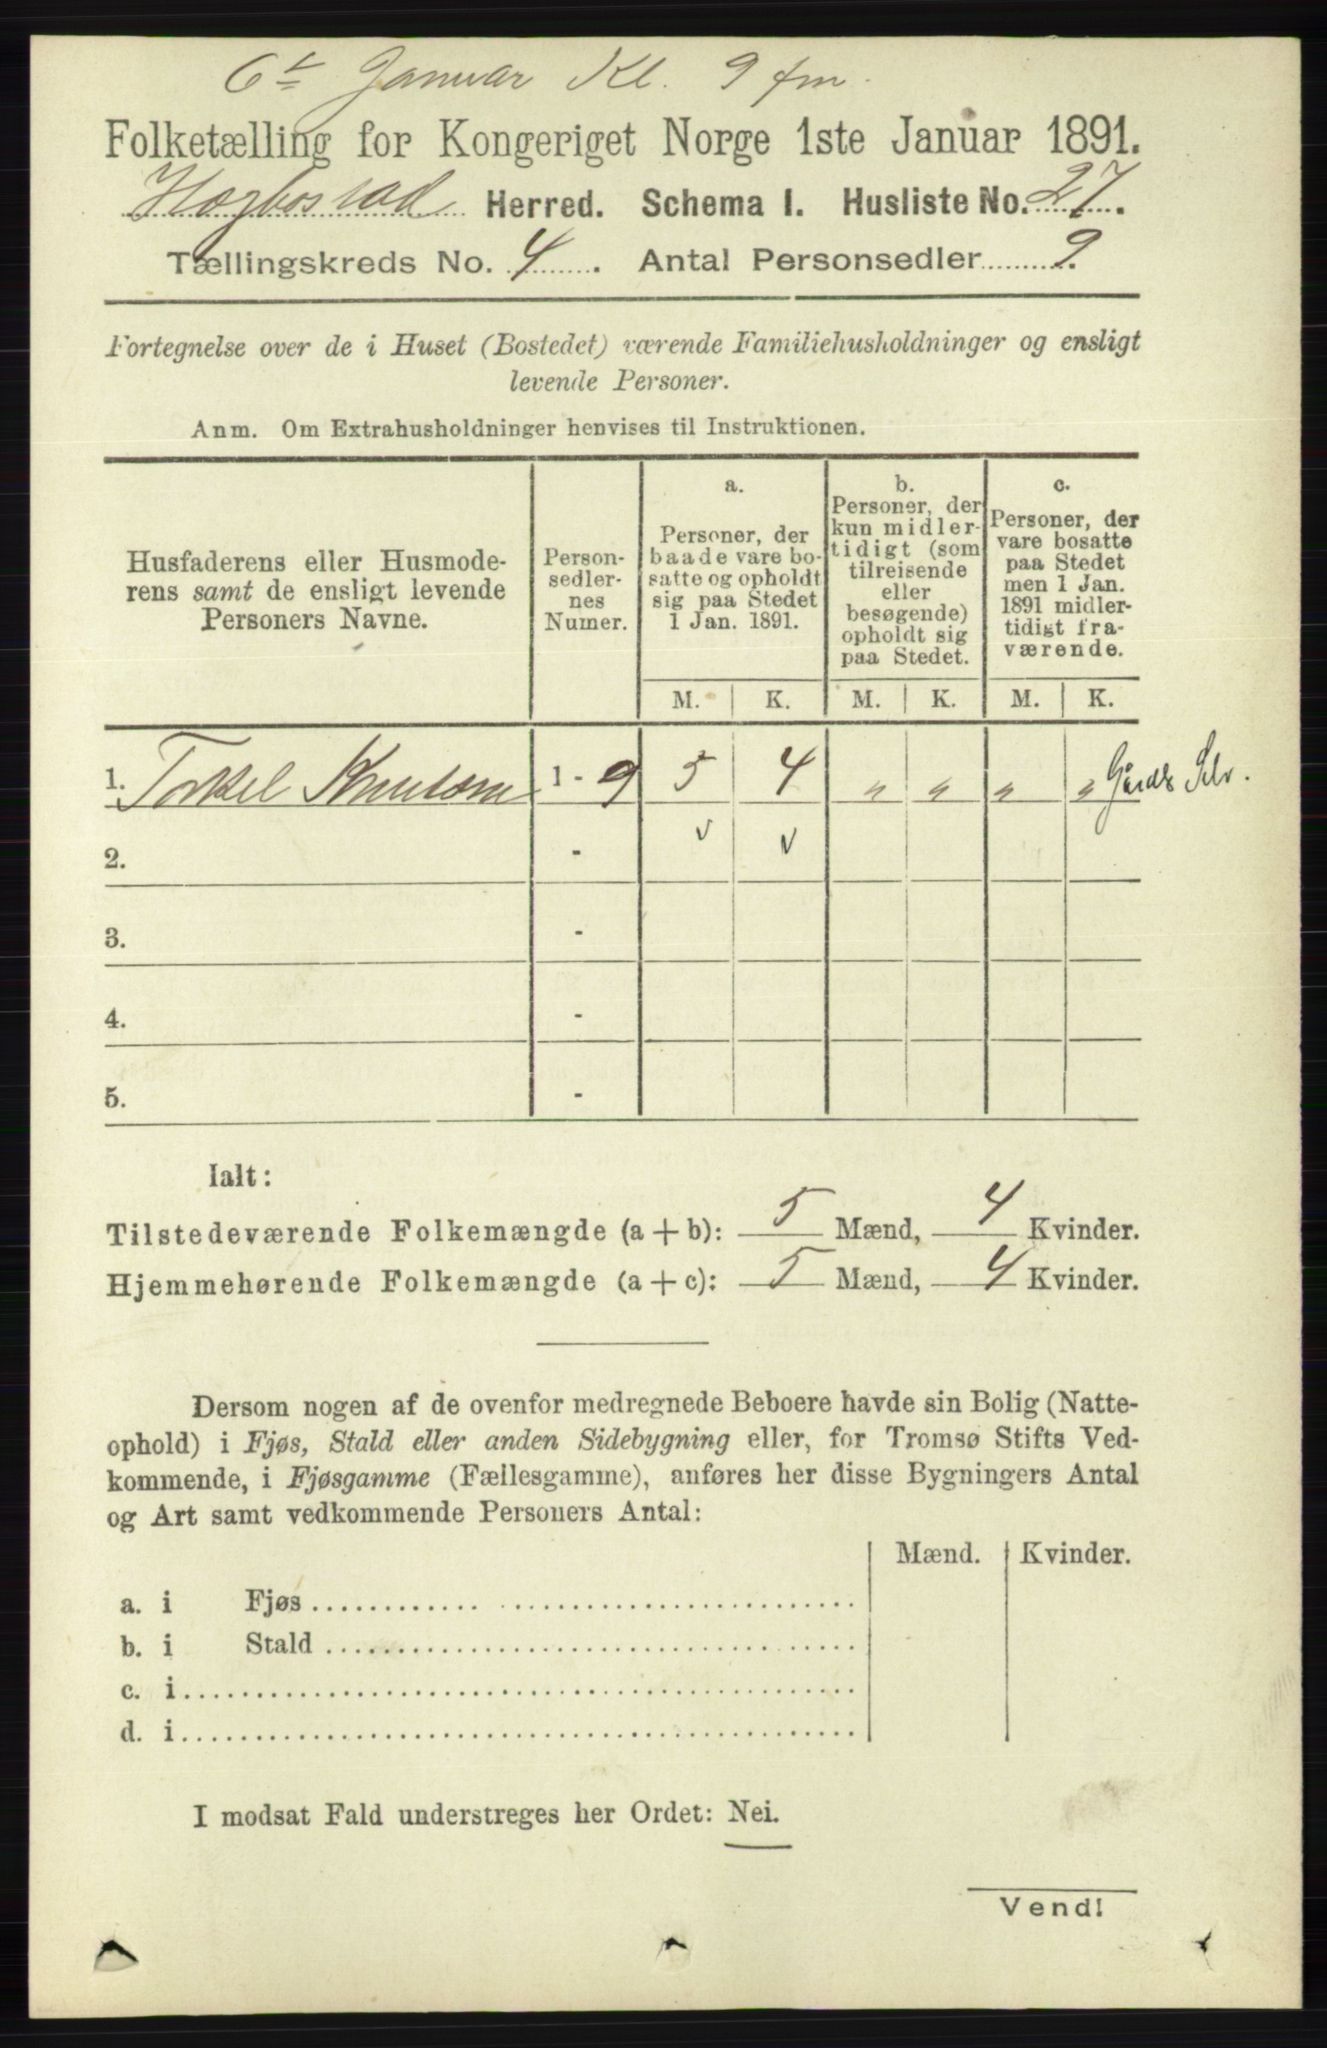 6te Januar Kl. 9 fm.
Folketælling for Kongeriget Norge 1ste Januar 1891.
Hægbostad Herred. Schema I. Husliste No. 27.
Tællingskreds No. 4. Antal Personsedler 9.
Fortegnelse over de i Huset (Bostedet) værende Familiehusholdninger og ensligt
levende Personer.
Anm. Om Extrahusholdninger henvises til Instruktionen.
Husfaderens eller Husmode-
rens samt de ensligt levende
Personers Navne.
Person-
sedler-
nes
Numer.
a.
Personer, der
baade vare bo-
satte og opholdt
sig paa Stedet
1 Jan. 1891.
b.
Personer, der
kun midler-
tidigt (som
tilreisende
eller
besøgende)
opholdt sig
paa Stedet.
c.
Personer, der
vare bosatte
paa Stedet
men 1 Jan.
1891 midler-
tidigt fra-
værende.
M. K. M. K. M. K.
1. Torkel Knutsen 1 - 9 5 4 " " " " Gårdb Selv.
2. - v v
3. -
4. -
5. -
Ialt:
Tilstedeværende Folkemængde (a + b): 5 Mænd, 4 Kvinder.
Hjemmehørende Folkemængde (a + c): 5 Mænd, 4 Kvinder.
Dersom nogen af de ovenfor medregnede Beboere havde sin Bolig (Natte-
ophold) i Fjøs, Stald eller anden Sidebygning eller, for Tromsø Stifts Ved-
kommende, i Fjøsgamme (Fællesgamme), anføres her disse Bygningers Antal
og Art samt vedkommende Personers Antal:
Mænd. Kvinder.
a. i Fjøs
b. i Stald
c. i
d. i
I modsat Fald understreges her Ordet: Nei.
Vend!